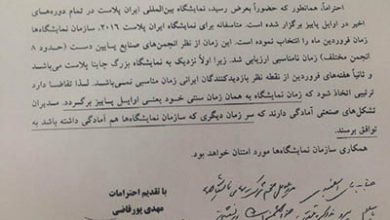 احتراماً، همانطور که حضوراً بعرض رسید، نمایشگاه بین‌المللی ایران پلاست در تمام دوره‌های
اخیر در اوایل پاییز برگزار شده است. متاسفانه برای نمایشگاه ایران پلاست ۲۰۱۶، سازمان نمایشگاه‌ها
زمان فروردین ماه را انتخاب نموده است. این زمان از نظر انجمن‌های صنایع پایین دست (حدود ۸
انجمن مختلف) زمان نامناسبی ارزیابی شد. زیرا اولاً نزدیک به نمایشگاه بزرگ چاینا پلاست می‌باشد
و ثانیاً هفته‌های فروردین از نقطه نظر بازدیدکنندگان ایرانی زمان مناسبی نمی‌باشد. لذا تقاضا دارد
ترتیبی اتخاذ شود که نمایشگاه به همان زمان سنتی خود یعنی اوایل پاییز برگردد. مدیران
تشکل‌های صنعتی آمادگی دارند که سر زمان دیگری که سازمان نمایشگاه‌ها هم آمادگی داشته باشد به
توافق برسند.
همکاری سازمان نمایشگاه‌ها مورد امتنان خواهد بود.
با تقدیم احترامات
مهدی پورقاضی